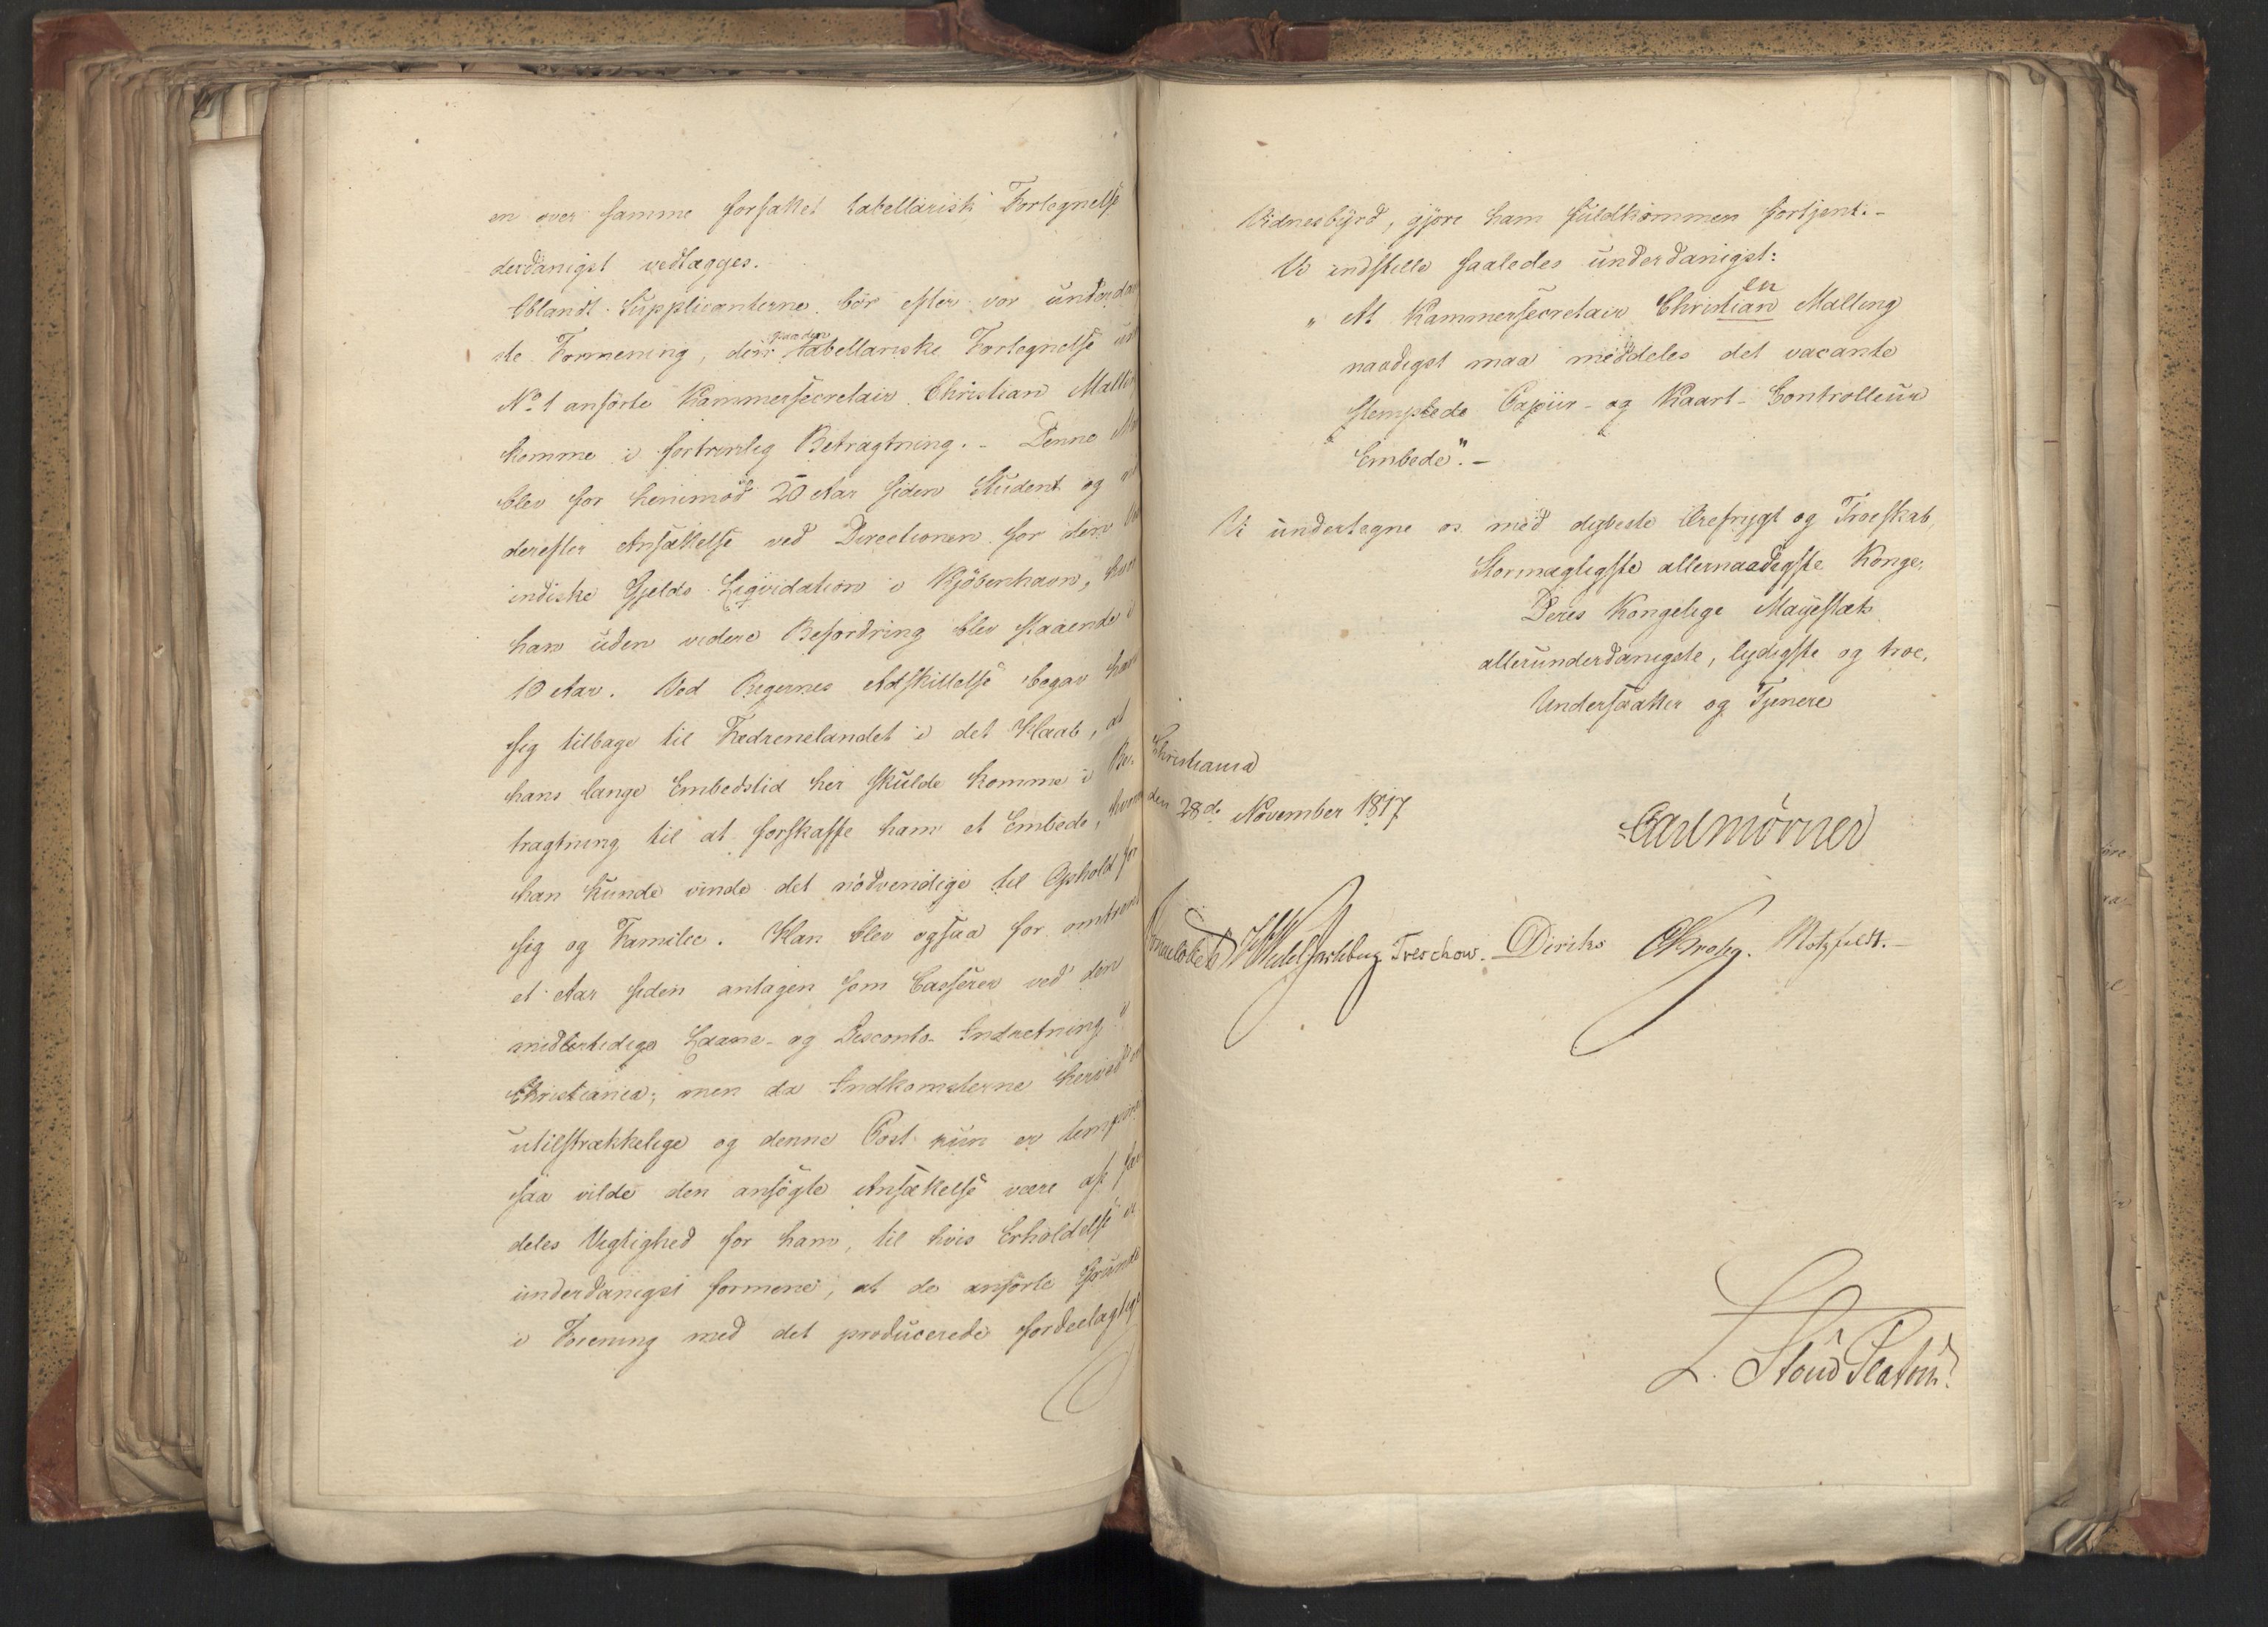 en over samme forfattet tabellarisk Fortegnelse
derdanigst vedlægges.
Iblandt Supplicanterne bør efter vor underda
ste Formening, den paa den tabellariske Fortegnelse un
No 1 anførte Kammersecretair Christian Malling
komme i fortrinlig Betragtning. - Denne
blev for henimod 20 Aar siden Student og
derefter Ansættelse ved Directionen for den
indiske Gjelds Liqvidation i Kjøbenhavn, hvor
han uden videre Befordring blev staaende i
10 Aar. Ved Rigernes Adskillelse begav han
sig tilbage til Fædrenelandet i det Haab, at
hans lange Embedstid her skulde komme i Be-
tragtning til at forskaffe ham et Embede, hvor
han kunde vinde det nødvendige til Ophold for
sig og Familie. Han blev ogsaa for omtrent
et Aar siden antagen som Casserer ved den
midlertidige Laane- og Disconto-Indretning i
Christiania; men da Indkomsterne herved
utilstrækkelige og denne Post kun er temporair
saa vilde den ansøgte Ansættelse være af sær
deles Vigtighed for ham, til hvis Erholdelse vi
underdanigst formene, at de anførte Grunde
i Forening med det producerede fordeelagtige
Vidnesbyrd, gjøre ham fuldkommen fortjent. -
Vi indstille saaledes underdanigst:
" At Kammersecretair Christian en Malling
naadigst maa meddeles det vacante
stemplede Papiir- og Kaart-Controlleur
Embede". -
Vi undertegne os med dybeste Ærefrygt og Troeskab,
Stormægtigste allernaadigste Konge,
Deres Kongelige Majestæts
allerunderdanigste, lydigste og troe,
Undersaatter og Tjenere
Christiania
den 28de November 1817
Carl Mørner
Sommerhielm Wedel Jarlsberg Treschow. Diriks CKrohg. Motzfeldt. -
L. Stoud Platou